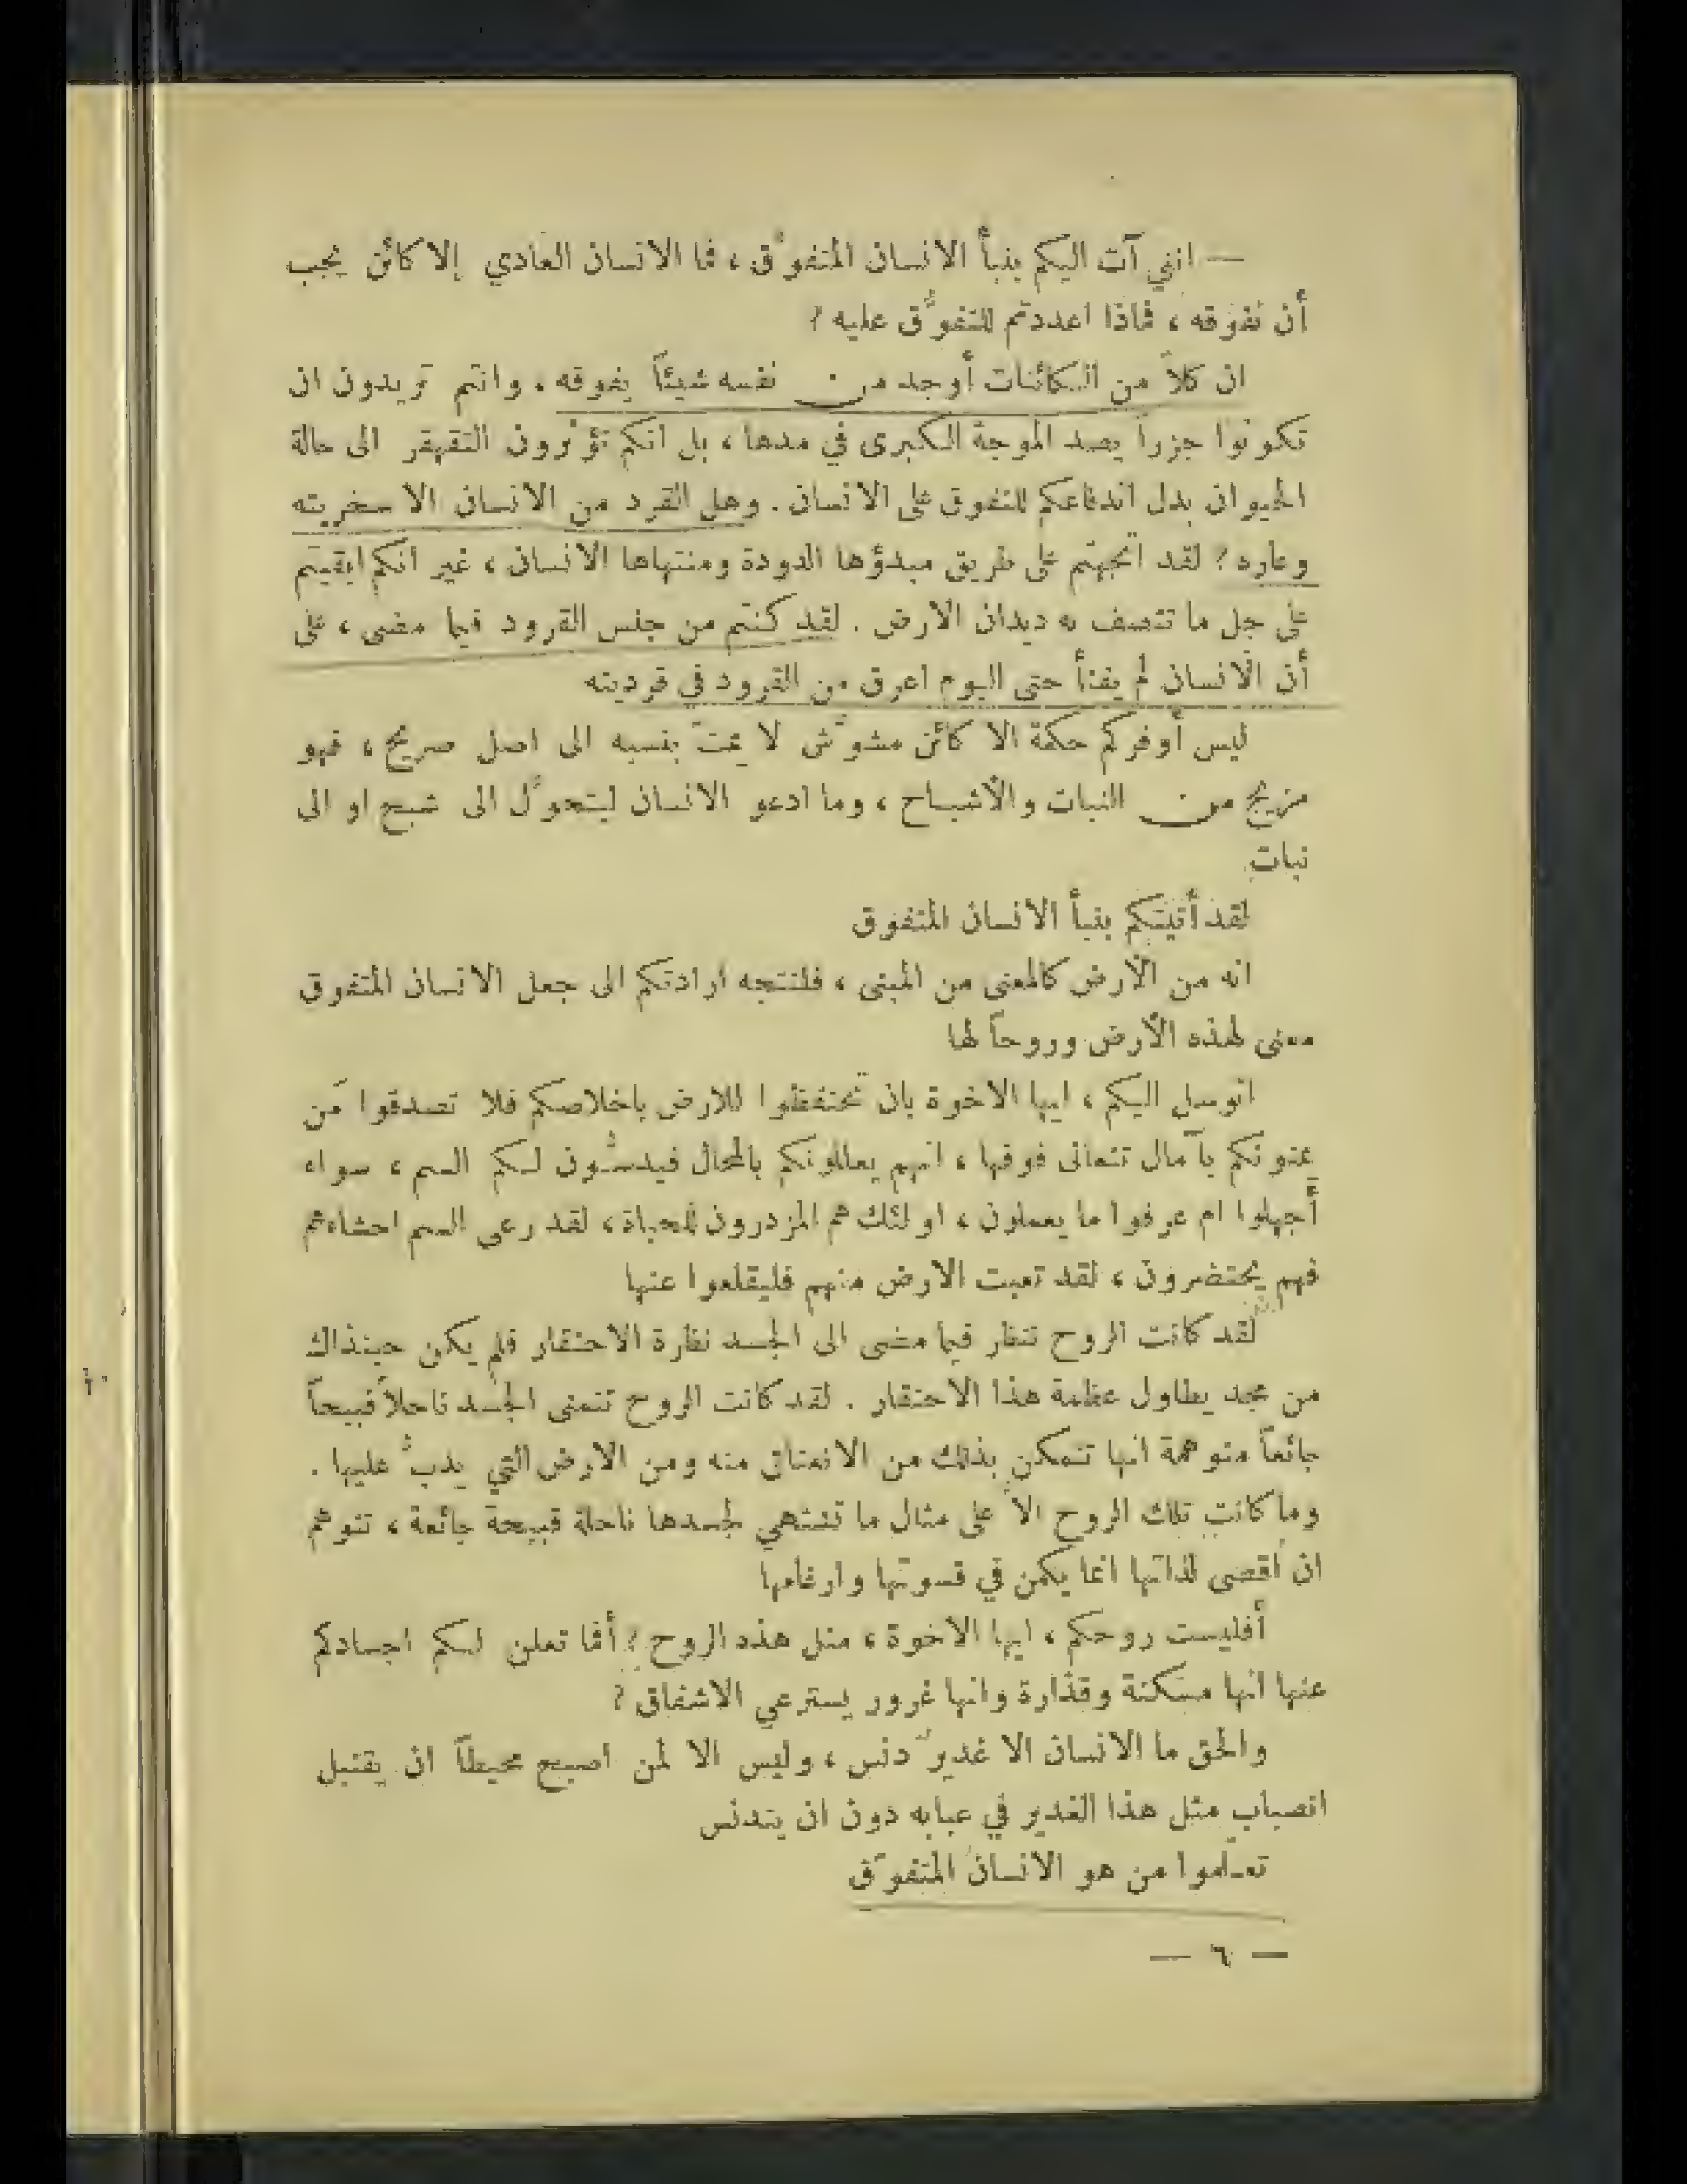 — انني آت اليكم بنبأ الانسان المتفوّق ، فما الانسان العادي إلا كائن يجب
أن نفوقه ، فماذا اعددتم للتفوّق عليه ؟
ان كلاً من الكائنات أوجد من نفسه شيئاً يفوقه . وانتم تريدون ان
تكونوا جزراً يصد الموجة الكبرى في مدها ، بل انكم تؤثرون التقهقر الى حالة
الحيوان بدل اندفاعكم للتفوق على الانسان . وهل القرد من الانسان الا سخريته
وعاره ؟ لقد اتجهتم على طريق مبدؤها الدودة ومنتهاها الانسان ، غير انكم ابقيتم
على جل ما تتصف به ديدان الارض . لقد كنتم من جنس القرود فيما مضى ، على
أن الانسان لم يفتأ حتى اليوم اعرق من القرود في قرديته
ليس أوفركم حكمة الا كائن مشوّش لا يمتّ بنسبه الى اصل صريح ، فهو
مزيج من النبات والأشباح ، وما ادعو الانسان ليتحوّل الى شبح او الى
نبات
لقد أتيتكم بنبأ الانسان المتفوق
انه من الأرض كالمعنى من المبنى ، فلتتجه ارادتكم الى جعل الانسان المتفوق
معنى لهذه الأرض وروحاً لها
اتوسل اليكم ، ايها الاخوة بان تحتفظوا للارض باخلاصكم فلا تصدقوا من
يمنونكم بآمال تتعالى فوقها ، انهم يعللونكم بالمحال فيدسّون لكم السم ، سواء
أجهلوا ام عرفوا ما يعملون ، اولئك هم المزدرون للحياة ، لقد رعى السم احشاءهم
فهم يحتضرون ، لقد تعبت الارض منهم فليقلعوا عنها
لقد كانت الروح تنظر فيما مضى الى الجسد نظرة الاحتقار فلم يكن حينذاك
من مجد يطاول عظمة هذا الاحتقار . لقد كانت الروح تتمنى الجسد ناحلاً قبيحاً
جائعاً متوهمة انها تتمكن بذلك من الانعتاق منه ومن الارض التي يدبّ عليها .
وما كانت تلك الروح الا على مثال ما تشتهي لجسدها ناحلة قبيحة جائعة ، تتوهم
ان أقصى لذاتها انما يكمن في قسوتها وارغامها
أفليست روحكم ، ايها الاخوة ، مثل هذه الروح ؟ أفما تعلن لكم اجسادكم
عنها انها مسكنة وقذارة وانها غرور يسترعي الاشفاق ؟
والحق ما الانسان الا غدير دنس ، وليس الا لمن اصبح محيطاً ان يقتبل
انصباب مثل هذا الغدير في عبابه دون ان يتدنس
تعلّموا من هو الانسان المتفوّق
— ٦ —